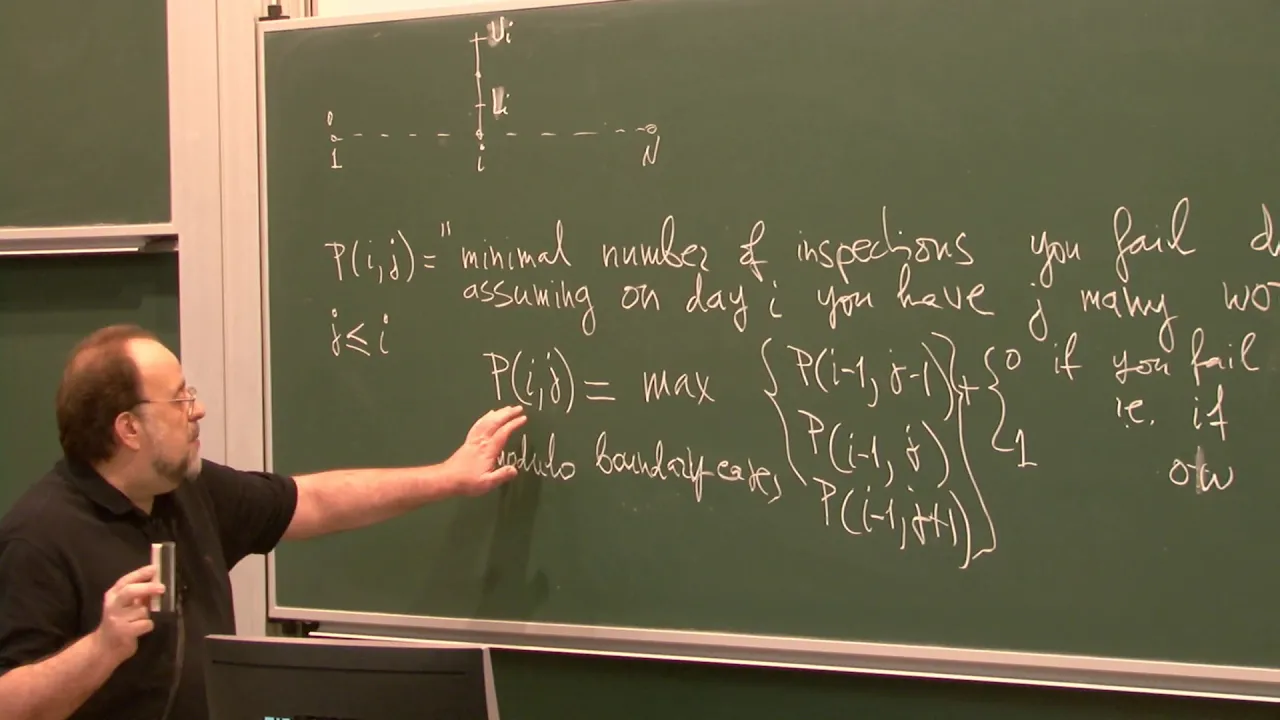 Ui
Li
0
1 i N
P(i,j) = "minimal number of inspections you fail
assuming on day i you have j many
j ≤ i
P(i,j) = max { P(i-1, j-1) } + { 0 if you fail
i.e. if
P(i-1, j)
1 otw
modulo boundary-cases,
P(i-1, j+1)